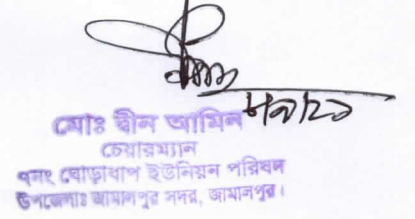 মোঃ দ্বীন আমিন
চেয়ারম্যান
৭নং ঘোড়াধাপ ইউনিয়ন পরিষদ
উপজেলাঃ জামালপুর সদর, জামালপুর।